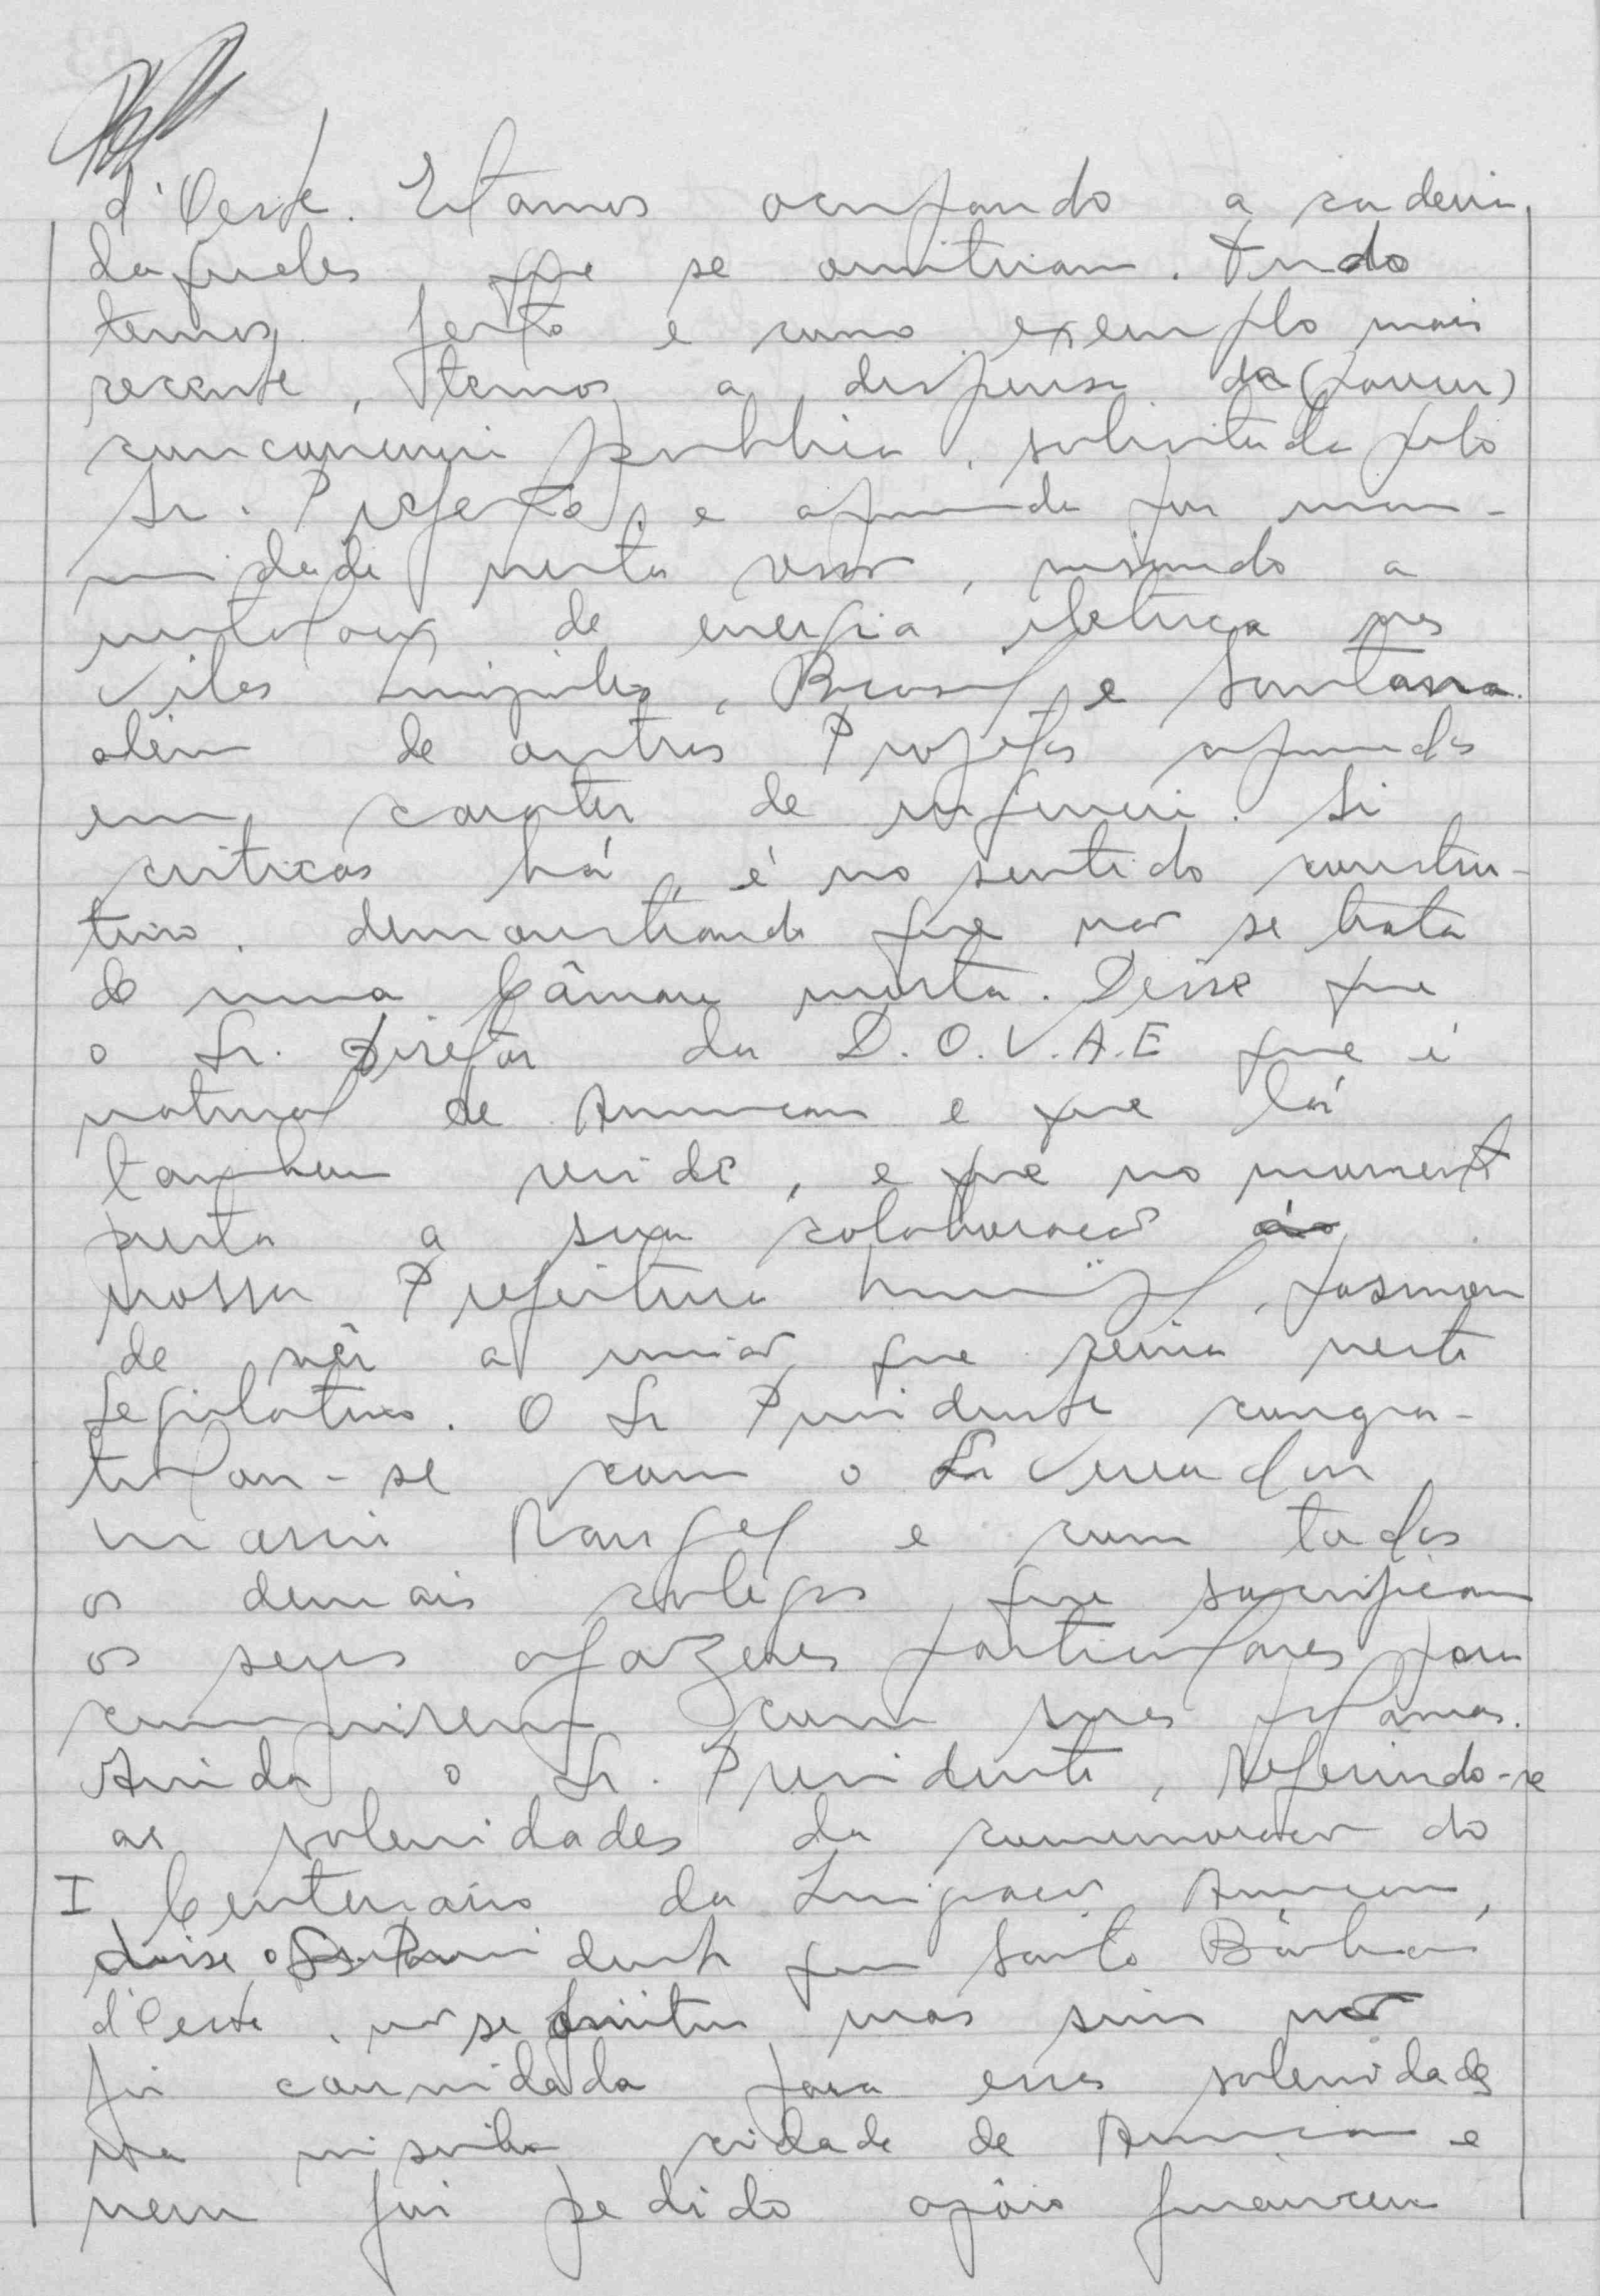 d'Oeste. Estamos ocupando a cadeira
daqueles que se omitiram. Tudo
temos feito e como exemplo mais
recente, temos a dispensa da (concor)
concorrencia publica, solicitada pelo
Sr. Prefeito, e aprovada por una-
nimidade nesta casa, visando a
instalação de energia eletrica nas
vilas Linopolis, Brasil e Santana.
além de outros Projetos aprovados
em carater de urgencia. Si
criticas há, é no sentido constru-
tivo, demonstrando que não se trata
de uma Câmara morta. Disse que
o Sr. Diretor da D.O.V.A.E que é
natural de Americana e que lá
tambem reside, e que no momento
presta a sua colaboração
nossa Prefeitura Municipal, pasmou
de vêr a união que reina neste
Legislativo. O Sr Presidente congra-
tulou-se com o Sr Vereador
Mario Rangel e com todos
os demais colegas que sacrificam
os seus afazeres particulares para
cumprirem com suas
Ainda o Sr. Presidente, referindo-se
as solenidades da comemoração do
I Centenário da Imigração Americana,
disse o Sr. Presidente que Santa Bárbara
d'Oeste, não se omitiu mas sim não
foi convidada para essas solenidades
na visinha cidade de Americana e
nem foi pedido apôio financeiro